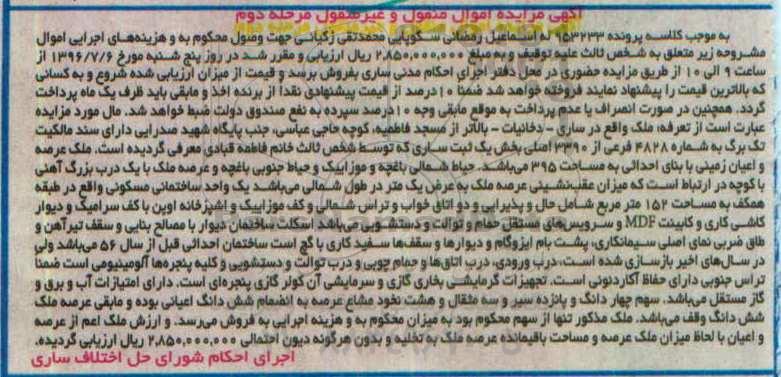 آگهی مزایده اموال منقول و غیرمنقول مرحله دوم
به موجب کلاسه پرونده ۱۵۳۲۳۳ له اسماعیل رمضانی سکوپایی محمدتقی زکیانی جهت وصول محکوم به و هزینه‌های اجرایی اموال
مشروحه زیر متعلق به شخص ثالث علیه توقیف و به مبلغ ۲,۸۵۰,۰۰۰,۰۰۰ ریال ارزیابی و مقرر شد در روز پنج شنبه مورخ ۱۳۹۶/۷/۶ از
ساعت ۹ الی ۱۰ از طریق مزایده حضوری در محل دفتر اجرای احکام مدنی ساری بفروش برسد و قیمت از میزان ارزیابی شده شروع و به کسانی
که بالاترین قیمت را پیشنهاد نمایند فروخته خواهد شد ضمنا ۱۰درصد از قیمت پیشنهادی نقدا از برنده اخذ و مابقی باید ظرف یک ماه پرداخت
گردد. همچنین در صورت انصراف یا عدم پرداخت به موقع مابقی وجه ۱۰درصد سپرده به نفع صندوق دولت ضبط خواهد شد. مال مورد مزایده
عبارت است از تعرفه، ملک واقع در ساری - دخانیات - بالاتر از مسجد فاطمیه، کوچه حاجی عباسی، جنب پایگاه شهید صدرایی دارای سند مالکیت
تک برگ به شماره ۴۸۲۸ فرعی از ۳۳۹۰ اصلی بخش یک ثبت ساری که توسط شخص ثالث خانم فاطمه قبادی معرفی گردیده است. ملک عرصه
و اعیان زمینی با بنای احداثی به مساحت ۳۹۵ می‌باشد. حیاط شمالی باغچه و موزاییک و حیاط جنوبی باغچه و عرصه ملک با یک درب بزرگ آهنی
با کوچه در ارتباط است که میزان عقب‌نشینی عرصه ملک به عرض یک متر در طول شمالی می‌باشد یک واحد ساختمانی مسکونی واقع در طبقه
همکف به مساحت ۱۵۲ متر مربع شامل حال و پذیرایی و دو اتاق خواب و تراس شمالی و کف موزاییک و اشپزخانه اوپن با کف سرامیک و دیوار
کاشی کاری و کابینت MDF و سرویس‌های مستقل حمام و توالت و دستشویی می‌باشد اسکلت ساختمان دیوار با مصالح بنایی و سقف تیرآهن و
طاق ضربی نمای اصلی سیمانکاری، پشت بام ایزوگام و دیوارها و سقف‌ها سفید کاری با گچ است ساختمان احداثی قبل از سال ۵۶ می‌باشد ولی
در سال‌های اخیر بازسازی شده است، درب ورودی، درب اتاق‌ها و حمام چوبی و درب توالت و دستشویی و کلیه پنجره‌ها آلومینیومی است ضمنا
تراس جنوبی دارای حفاظ آکاردئونی است. تجهیزات گرمایشی بخاری گازی و سرمایشی آن کولر گازی پنجره‌ای است. دارای امتیازات آب و برق و
گاز مستقل می‌باشد. سهم چهار دانگ و پانزده سیر و سه مثقال و هشت نخود مشاع عرصه به انضمام شش دانگ اعیانی بوده و مابقی عرصه ملک
شش دانگ وقف می‌باشد. ملک مذکور تنها از سهم محکوم بود به میزان محکوم به و هزینه اجرایی به فروش می‌رسد. و ارزش ملک اعم از عرصه
و اعیان با لحاظ میزان ملک عرصه و مساحت باقیمانده عرصه ملک به تخلیه و بدون هرگونه دیون احتمالی ۲,۸۵۰,۰۰۰,۰۰۰ ریال ارزیابی گردیده.
اجرای احکام شورای حل اختلاف ساری